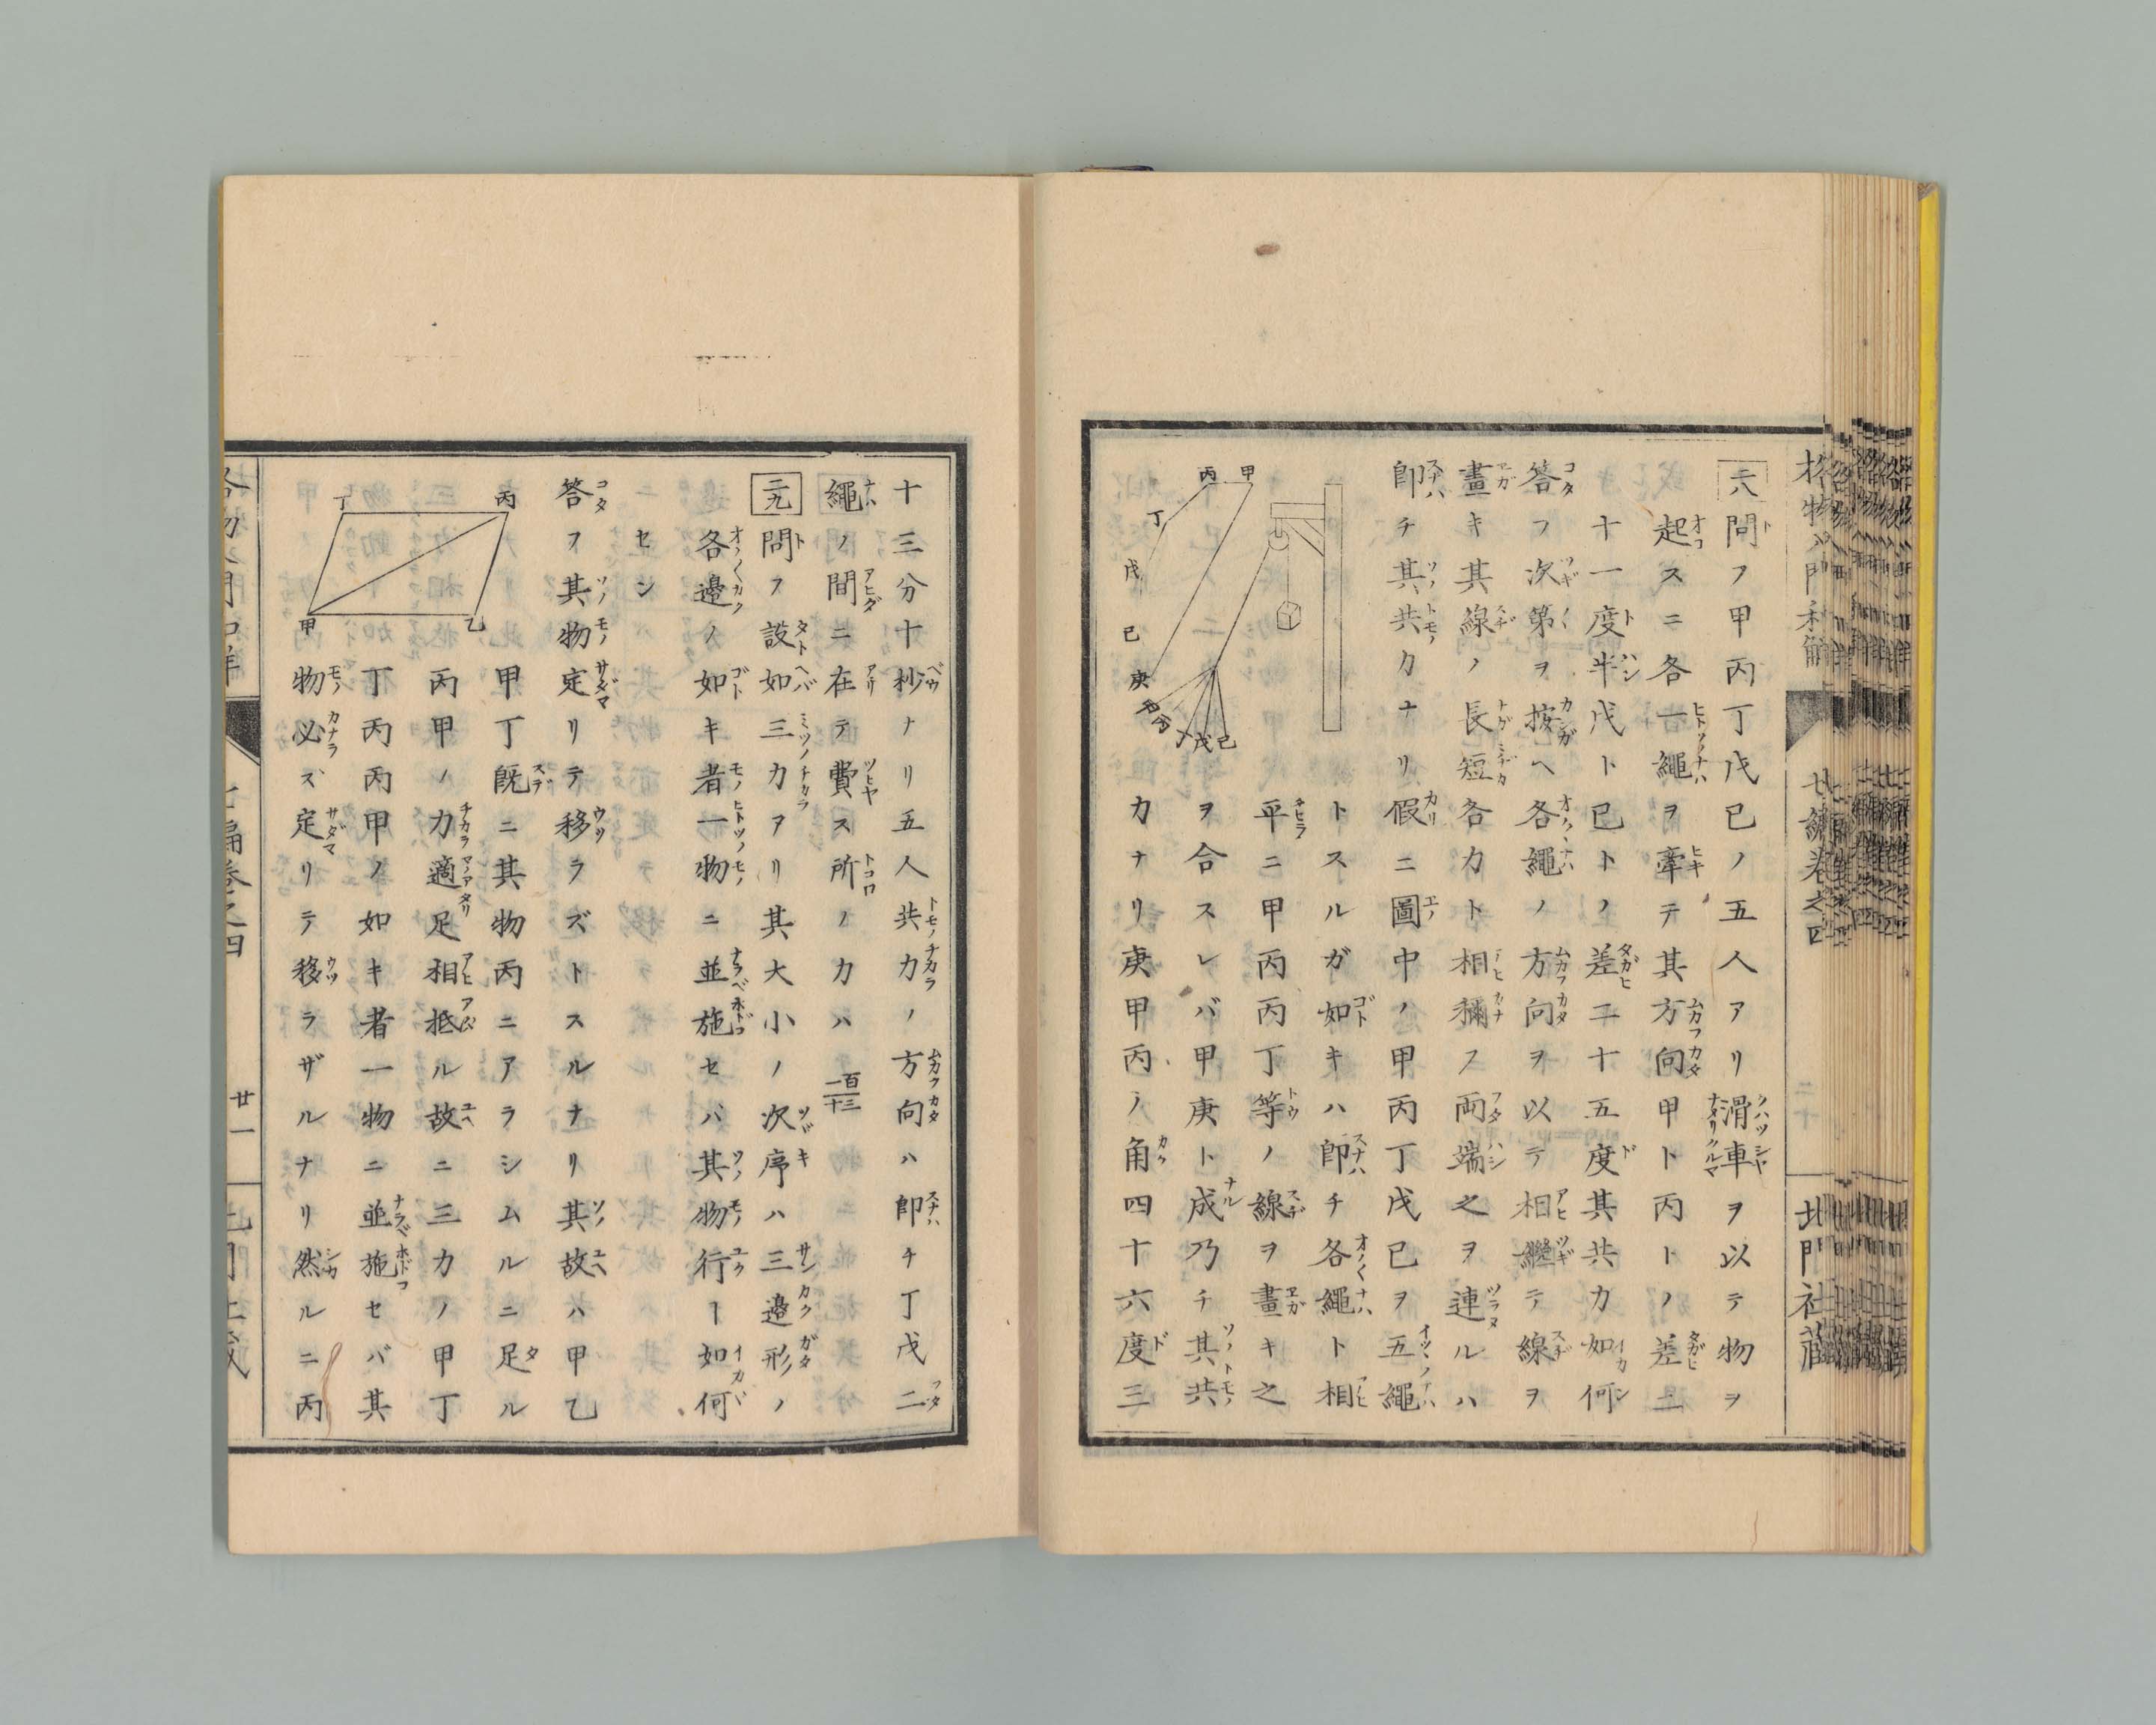 格物入門和解
七編卷之四
二十
北門社藏
二八 問フ甲丙丁戊已ノ五人アリ滑車ヲ以テ物ヲ
起スニ各一繩ヲ牽テ其方向甲ト丙トノ差二
十一度半戊ト已トノ差二十五度其共力如何
答フ次第ヲ按ヘ各繩ノ方向ヲ以テ相繼テ線ヲ
畫キ其線ノ長短各力ト相稱フ両端之ヲ連ルハ
卽チ其共力ナリ假ニ圖中ノ甲丙丁戊已ヲ五繩
トスルガ如キハ卽チ各繩ト相
平ニ甲丙丙丁等ノ線ヲ畫キ之
ヲ合スレバ甲庚ト成乃チ其共
力ナリ庚甲丙ノ角四十六度三
甲
丙
丁
戊
已
庚
丁
戊
已
十三分十秒ナリ五人共力ノ方向ハ卽チ丁戊二
繩ノ間ニ在テ費ス所ノ力ハ一百三十
二九 問フ設如三力アリ其大小ノ次序ハ三邉形ノ
各邉ノ如キ者一物ニ並施セバ其物行ー如何
セン
答フ其物定リテ移ラズトスルナリ其故ハ甲乙
甲丁既ニ其物丙ニアラシムルニ足ル
丙甲ノ力適足相抵ル故ニ三力ノ甲丁
丁丙丙甲ノ如キ者一物ニ並施セバ其
物必ズ定リテ移ラザルナリ然ルニ丙
丁
丙
甲
乙
格物入門和解
七編卷之四
廿一
北門社藏